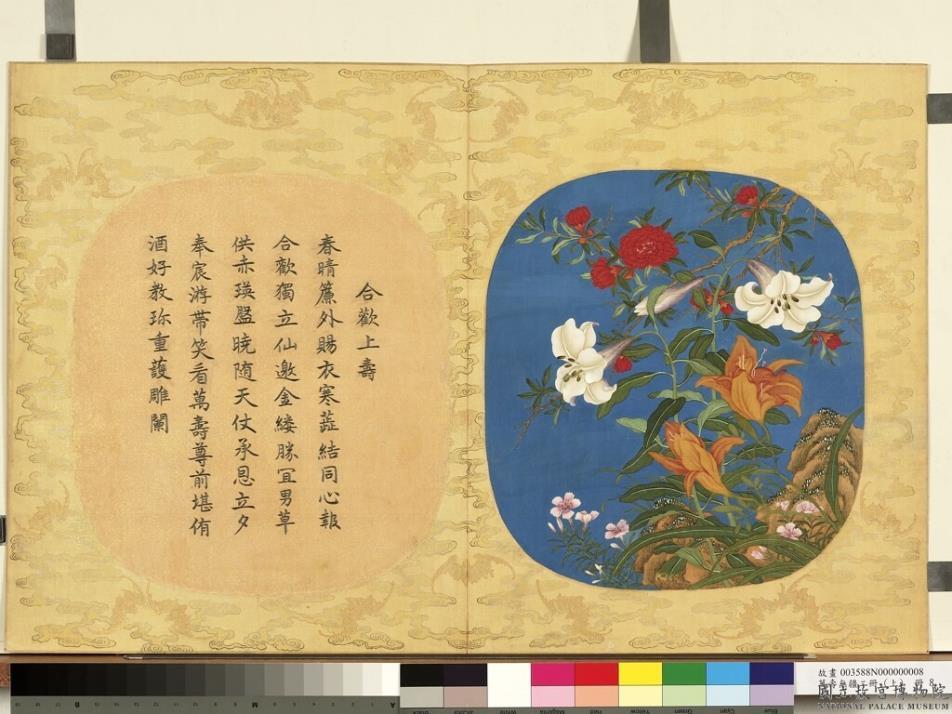 合歡上壽
春晴簾外賜衣寒蕋結同心報
合歡獨立仙邀金縷勝冝男草
供赤瑛盤曉随天仗承恩立夕
奉宸游帶笑看萬壽尊前堪侑
酒好教珎重護雕闌
故畫 003588N000000008
國立故宮博物院
NATIONAL PALACE MUSEUM